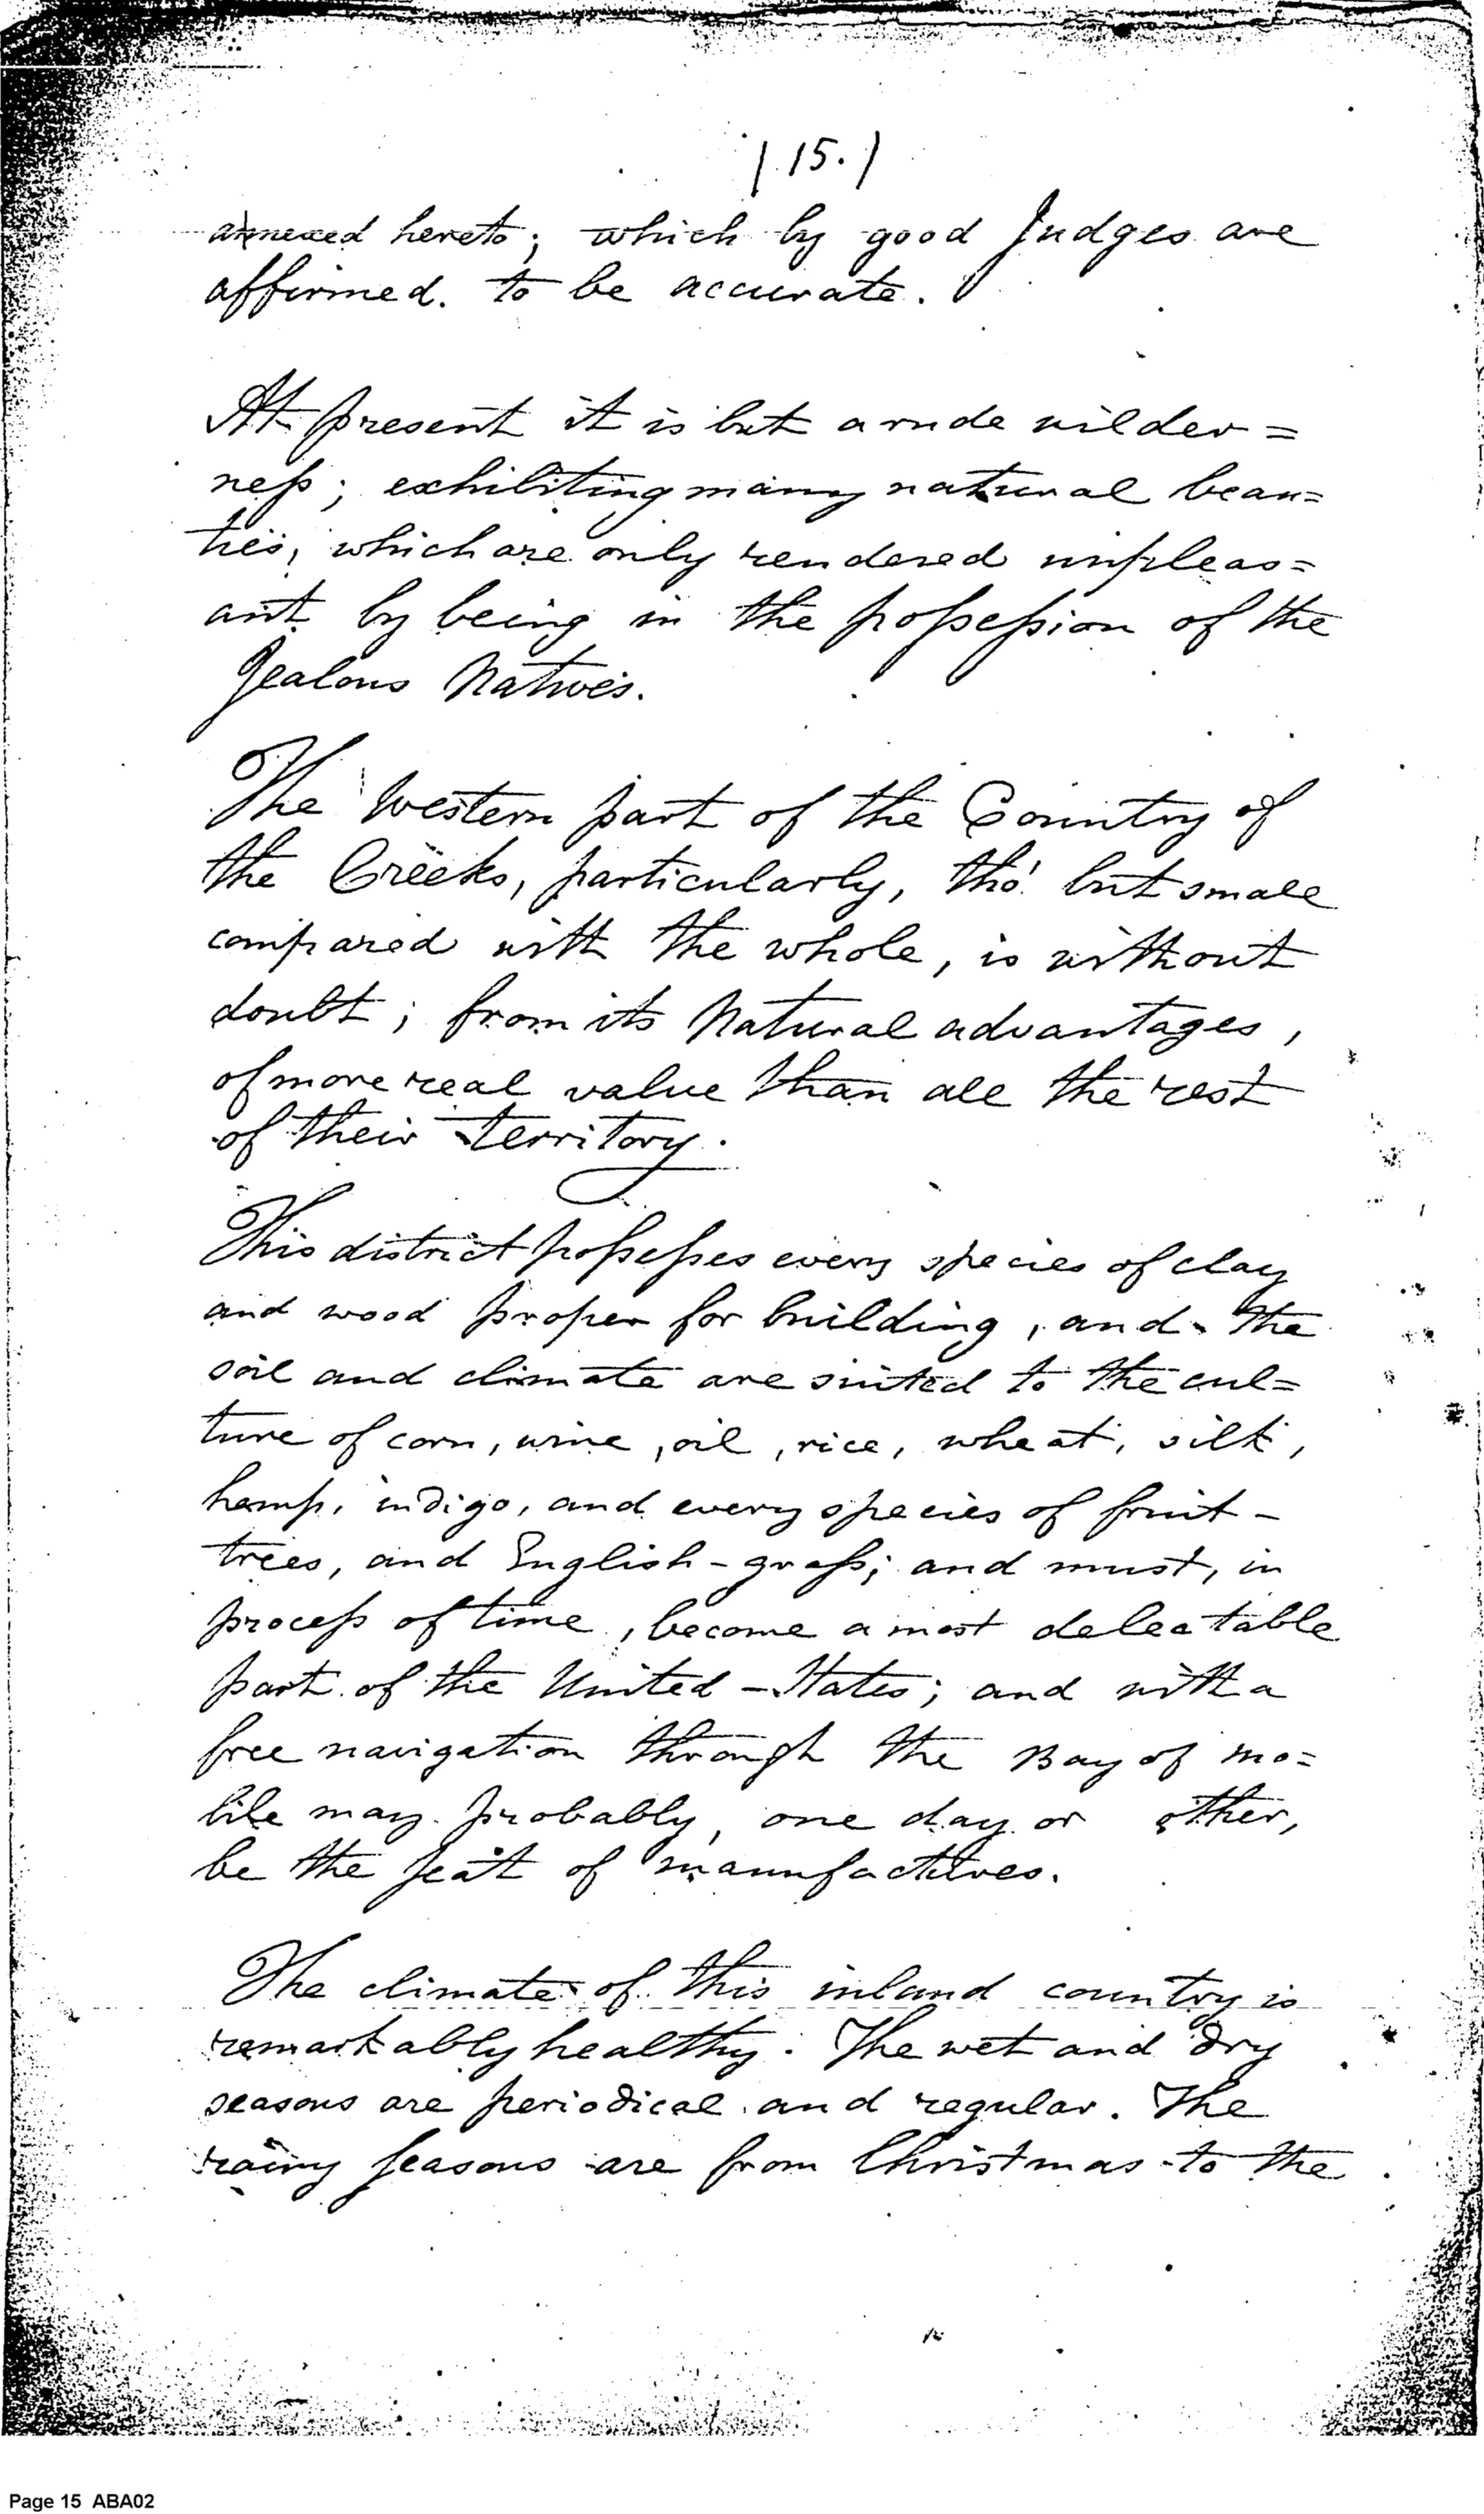 / 15. /
annexed hereto; which by good Judges are
affirmed. to be accurate.
At present it is but a rude wilder=
ness; exhibiting many natural beau=
ties, which are only rendered unpleas=
ant by being in the possession of the
Jealous Natives.
The Western part of the Country of
the Creeks, particularly, tho' but small
compared with the whole, is without
doubt; from its Natural advantages,
of more real value than all the rest
of their territory.
This district possesses every species of clay
and wood proper for building, and the
soil and climate are suited to the cul=
ture of corn, wine, oil, rice, wheat, silk,
hemp, indigo, and every species of fruit-
trees, and English-grass; and must, in
process of time, become a most delectable
part of the United-States; and with a
free navigation through the Bay of Mo=
bile may probably, one day or other,
be the seat of manufactures.
The climate of this inland country is
remarkably healthy. The wet and dry
seasons are periodical and regular. The
rainy seasons are from Christmas to the
Page 15 ABA02